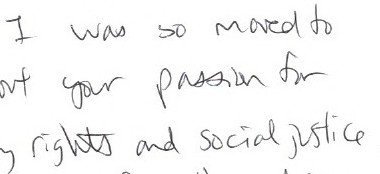 I was so moved to
your passion for
rights and social justice